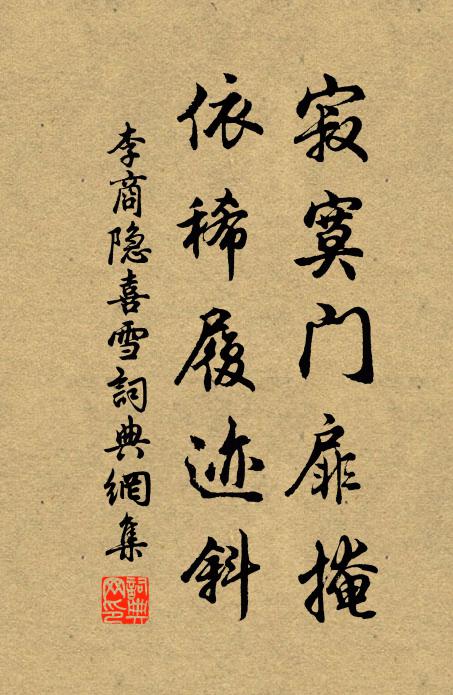 寂寞门扉掩
依稀履迹斜
李商隐喜雪詞典網集
詞典网印